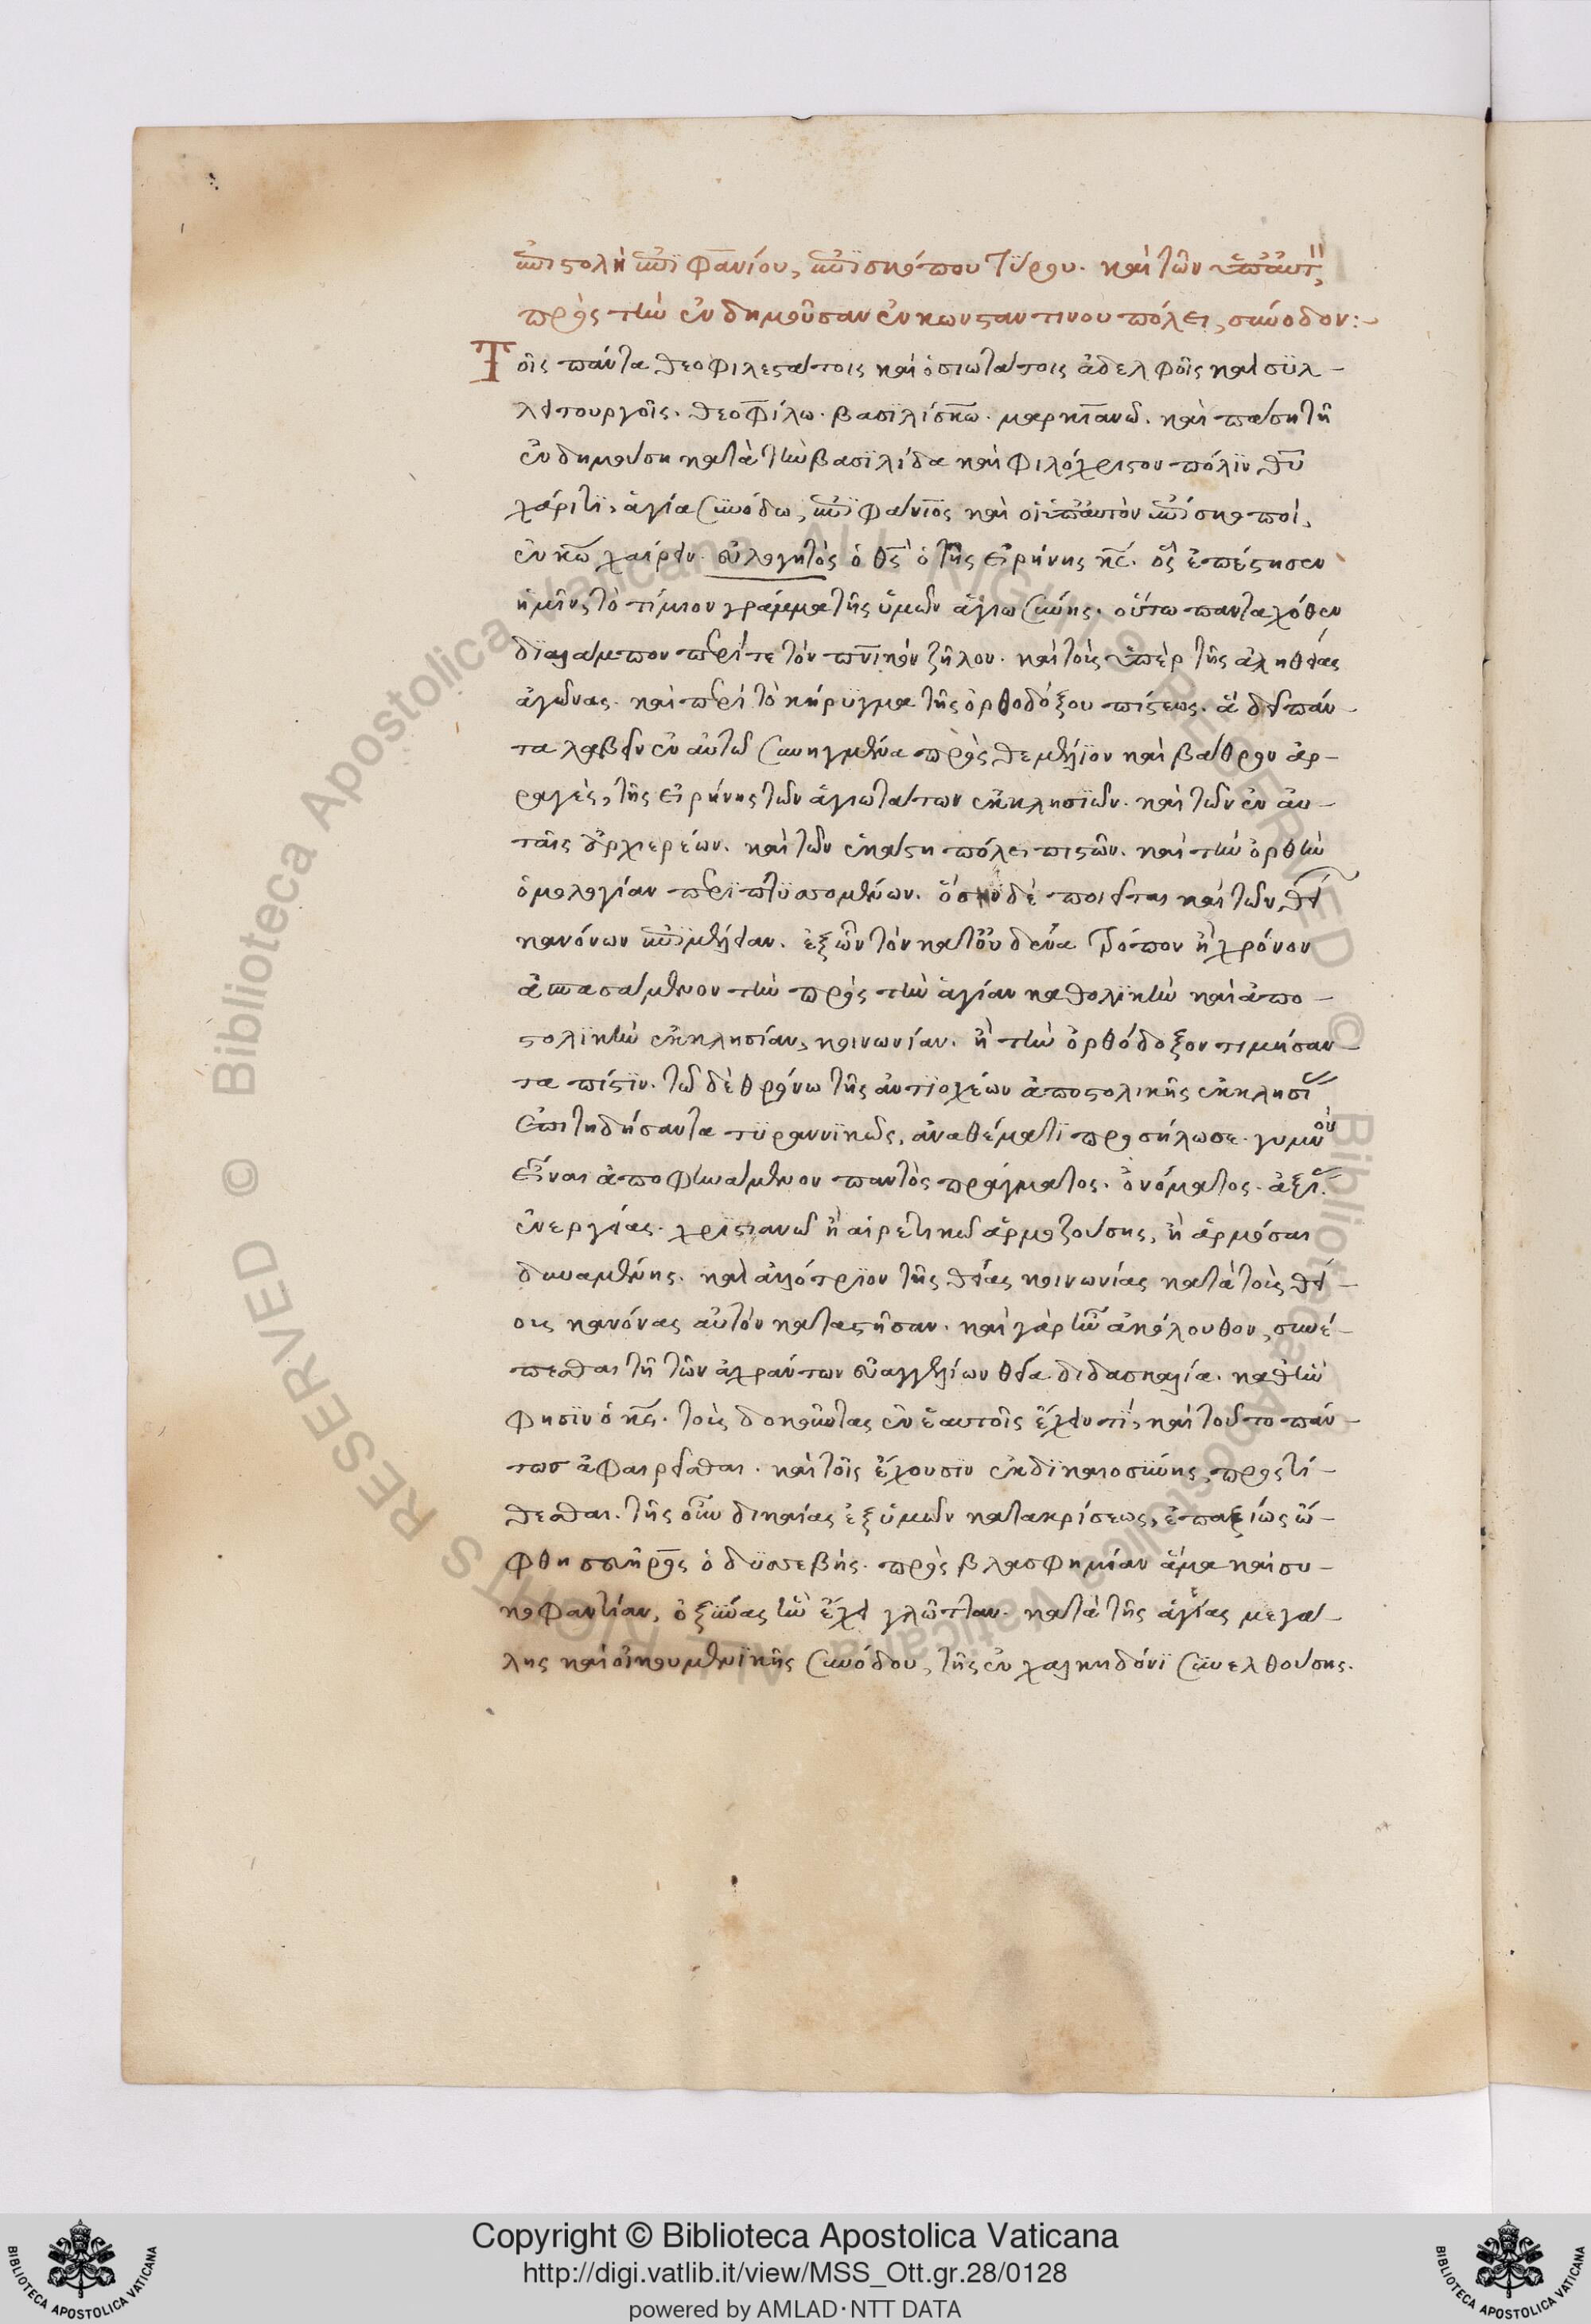 ἐπιστολὴ ἐπιφανίου, ἐπισκόπου τύρου. καὶ τῶν ὑπ' αὐτ
πρὸς τὴν ἐνδημοῦσαν ἐν κωνσταντινουπόλει, σύνοδον:-
Τοῖς πάντα θεοφιλεστάτοις καὶ ὁσιωτάτοις ἀδελφοῖς καὶ σϋλ-
λειτουργοῖς. θεοφίλω. βασϊλίσκω. μαρκιανῶ. καὶ πάση τῆ
ἐνδημούση κατὰ τὴν βασϊλίδα καὶ φιλόχριστον πόλϊν θυ
χάριτϊ, ἁγία συνόδω, ἐπϊφάνϊος καὶ οἱ ὑπ' αὐτὸν ἐπίσκοποι,
ἐν κω χαίρειν. εὐλογητὸς ὁ θς ὁ τῆς εἰρήνης κς. ὃς ἐπέστησεν
ἡμῖν, τὸ τίμιον γράμμα τῆς ὑμῶν ἁγιωσύνης. οὕτω πανταχόθεν
δϊαλάμπον περί τε τὸν πνικὸν ζῆλον. καὶ τοὺς ὑπὲρ τῆς ἀληθείας
ἀγῶνας. καὶ περὶ τὸ κήρϋγμα τῆς ὀρθοδόξου πίστεως. ἃ δεῖ πάν-
τα λαβεῖν ἐν αὐτῶ συνηγμένα πρὸς θεμέλϊον καὶ βάθρον ἀρ-
ραγὲς, τῆς εἰρήνης τῶν ἁγιωτάτων ἐκκλησϊῶν. καὶ τῶν ἐν αὐ-
ταῖς ἀρχιερέων. καὶ τῶν ἑκάστη πόλει πιστῶν. καὶ τὴν ὀρθὴν
ὁμολογίαν περϊπτϋσσομένων. ὅσην δὲ ποιεῖται καὶ τῶν θεί
κανόνων ἐπϊμέλειαν. ἐξ ὧν τὸν κατ' οὐδένα τρόπον ἢ χρόνον
ἀσπασάμενον τὴν πρὸς τὴν ἁγίαν καθολϊκὴν καὶ ἀπο-
στολϊκὴν ἐκκλησίαν, κοινωνίαν. ἢ τὴν ὀρθόδοξον τιμήσαν-
τα πίστϊν. τῶ δὲ θρόνω τῆς ἀντϊοχέων ἀποστολικῆς ἐκκλησϊ
ἐπιπηδήσαντα τϋραννϊκῶς, ἀναθέματϊ προσήλωσε. γυμνὸν
εἶναι ἀποφηνάμενον παντὸς πράγματος. ὀνόματος. ἀξί.
ἐνεργείας. χρϊστιανῶ ἢ αἱρετικῶ ἁρμοζούσης, ἢ ἁρμόσαι
δυναμένης. καὶ ἀλλότρϊον τῆς θείας κοινωνίας κατὰ τοὺς θεί-
ους κανόνας αὐτὸν καταστῆσαν. καὶ γὰρ ἦν ἀκόλουθον, συνέ-
πεσθαι τῆ τῶν ἀχράντων εὐαγγελίων θεία διδασκαλία. καθ' ἣν
φησϊν ὁ κς. τοὺς δοκοῦντας ἐν ἑαυτοῖς ἔχειν τϊ, καὶ τοῦτο πάν-
τως ἀφαιρεῖσθαι. καὶ τοῖς ἔχουσϊν ἐκ δϊκαιοσύνης, προστί-
θεσθαι. τῆς οὖν δικαίας ἐξ ὑμῶν κατακρίσεως, ἐπαξίως ὤ-
φθη σευῆρος ὁ δϋσσεβής. πρὸς βλασφημίαν ἅμα καὶ συ-
κοφαντίαν, ὀξύνας ἣν ἔχει γλῶτταν. κατὰ τῆς ἁγίας μεγά-
λης καὶ οἰκουμενϊκῆς συνόδου, τῆς ἐν χαλκηδόνϊ συνελθούσης.
Copyright © Biblioteca Apostolica Vaticana
http://digi.vatlib.it/view/MSS_Ott.gr.28/0128
powered by AMLAD·NTT DATA